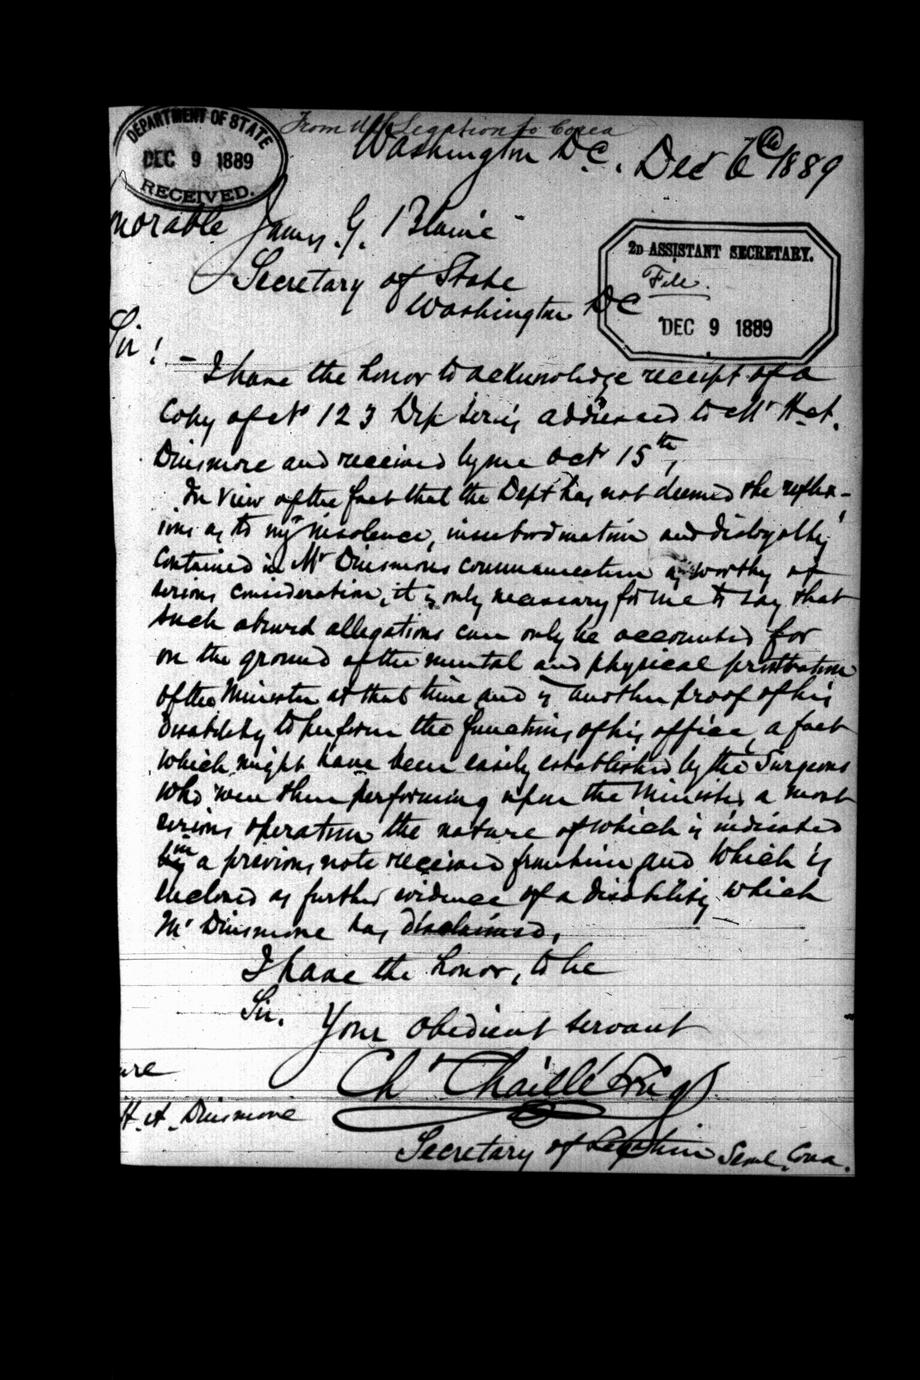 DEPARTMENT OF STATE
DEC 9 1889
RECEIVED.
From Legation to Corea
Washington D.C. Dec 6th 1889
norable James G. Blaine
Secretary of State
Washington DC
2D ASSISTANT SECRETARY.
File.
DEC 9 1889
Sir! –
I have the honor to acknowledge receipt of a
Copy of No 123 Dip Series addressed to Mr H.A.
Dinsmore and received by me Oct 15th,
In view of the fact that the Dept has not deemed the reflex-
ions as to my insolence, insubordination and disloyalty
contained in Mr Dinsmores communication as worthy of
serious consideration, it is only necessary for me to say that
such absurd allegations can only be accounted for
on the ground of the mental and physical prostration
of the Minister at that time and is another proof of his
disability to perform the functions of his office, a fact
which might have been easily established by the Surgeons
who were then performing upon the Minister a most
serious operation the nature of which is indicated
in a previous note received from him and which is
enclosed as further evidence of a disability which
Mr Dinsmore has disclaimed.
I have the honor, to be
Sir.
Your obedient servant
Ch Chaillé Long
ure
H.A. Dinsmore
Secretary of Legation Seoul, Corea.